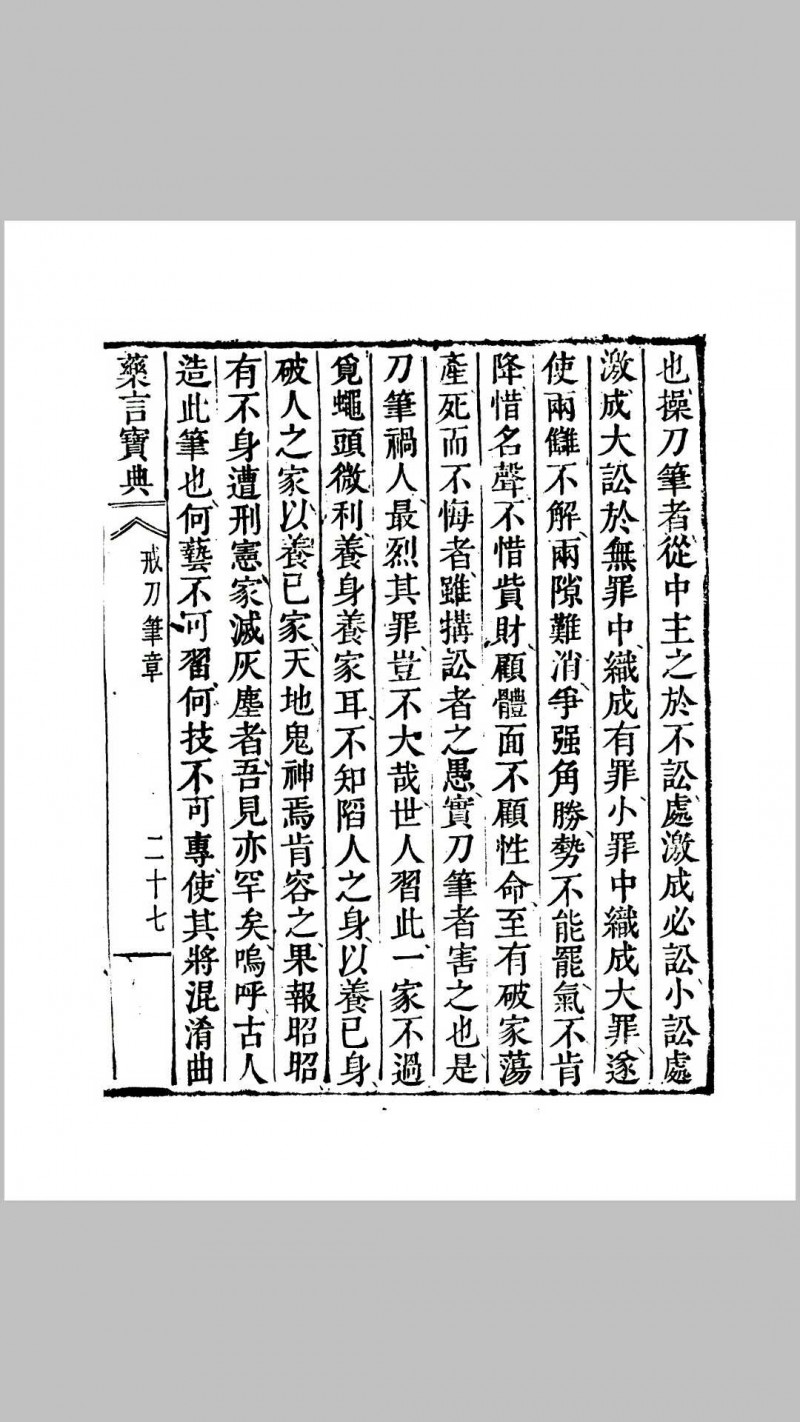 也操刀筆者從中主之於不訟處激成必訟小訟處
激成大訟於無罪中織成有罪小罪中織成大罪遂
使兩讎不解兩隙難消爭强角勝勢不能罷氣不肯
降惜名聲不惜貲財顧體面不顧性命至有破家蕩
產死而不悔者雖搆訟者之愚實刀筆者害之也是
刀筆禍人最烈其罪豈不大哉世人習此一家不過
覓蠅頭微利養身養家耳不知陷人之身以養已身
破人之家以養已家天地鬼神焉肯容之果報昭昭
有不身遭刑憲家滅灰塵者吾見亦罕矣嗚呼古人
造此筆也何藝不可習何技不可專使其將混淆曲
藥言寶典 戒刀筆章 二十七